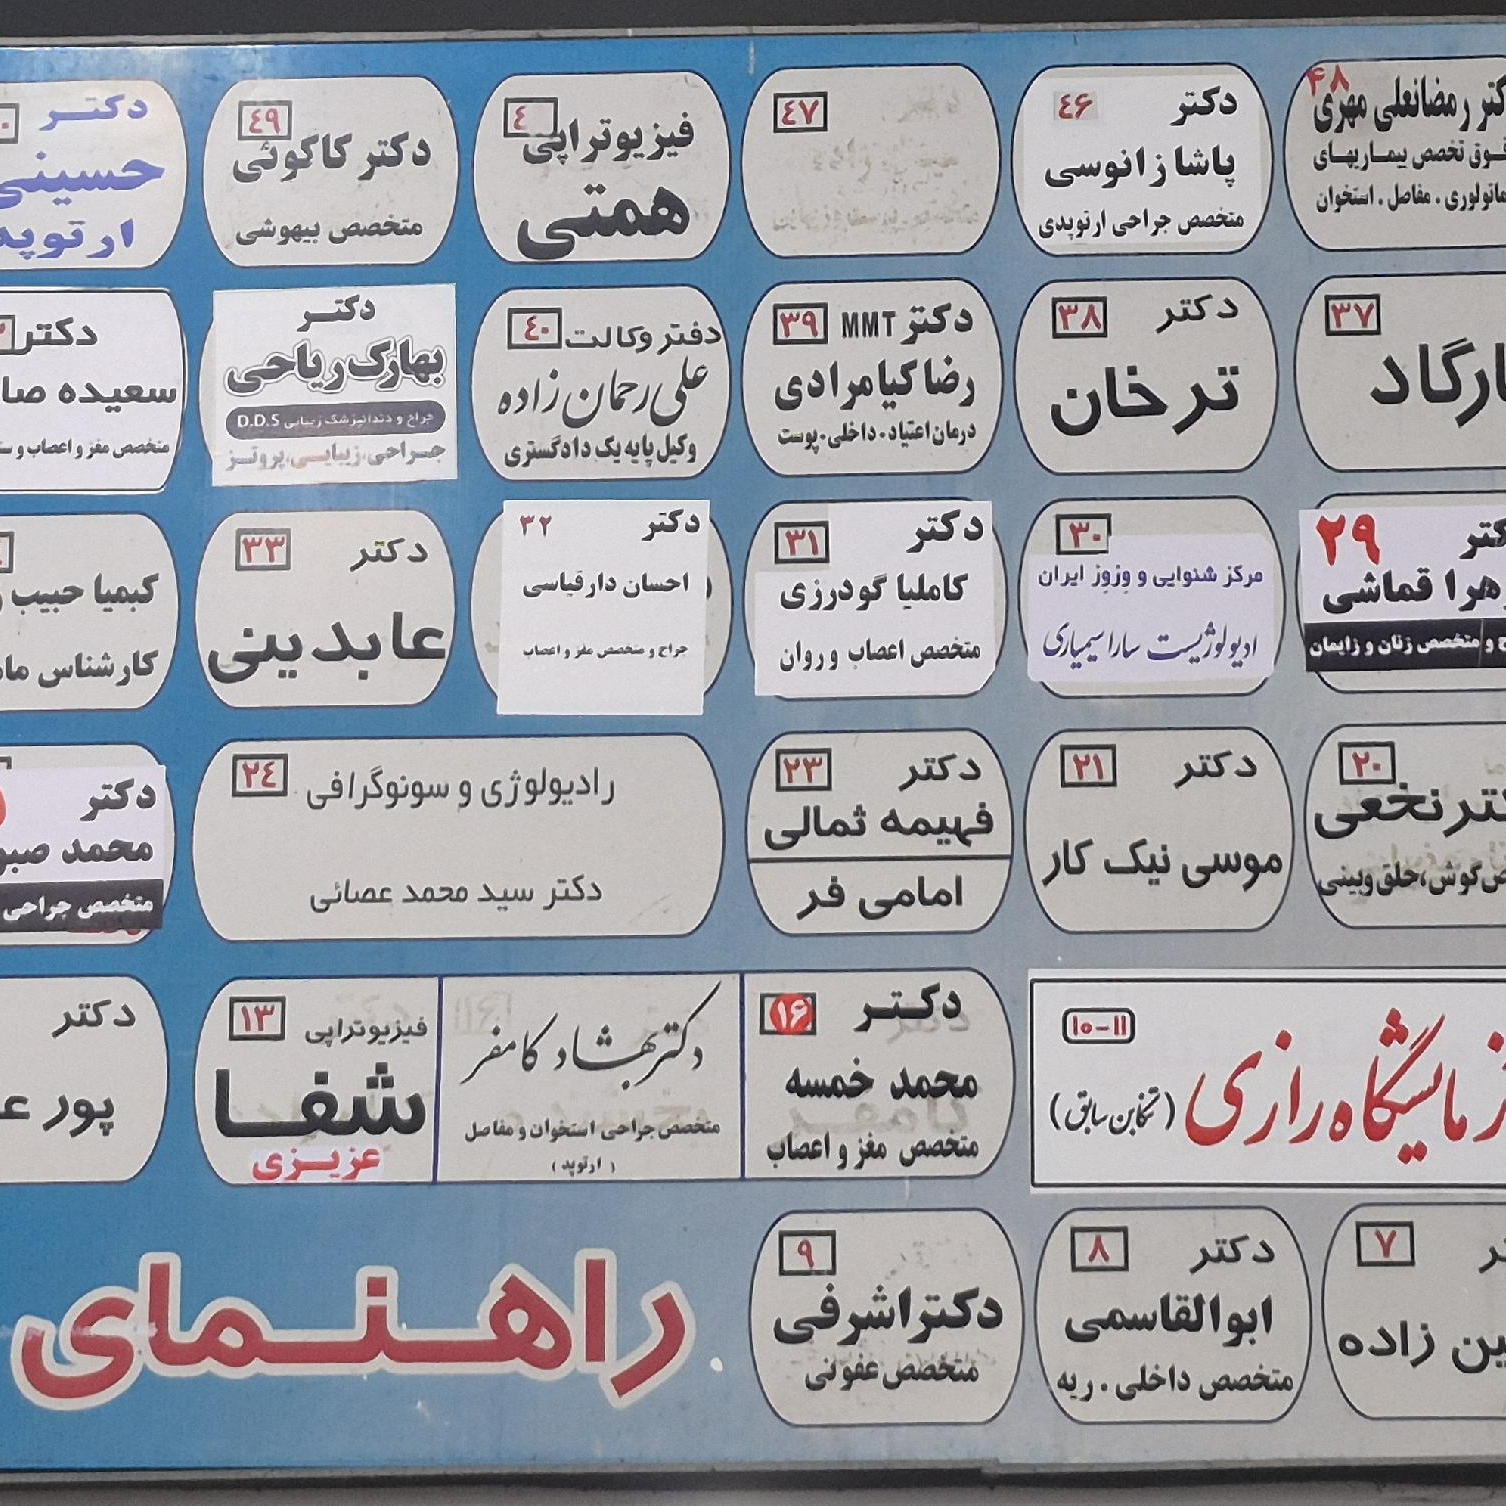 ۴۸
رمضانعلی مهری
تخصص بیماریهای
مفاصل . استخوان
٤۶
دکتر
پاشا زانوسی
متخصص جراحی ارتوپدی
٤٧
٤
فیزیوتراپی
همتی
٤٩
دکتر کاکوئی
متخصص بیهوشی
دکتر
حسینی
ارتوپد
۳۷
۳۸
دکتر
ترخان
۳۹
دکتر MMT
رضا کیامرادی
درمان اعتیاد . داخلی . پوست
٤۰
دفتر وکالت
علی رحمان زاده
وکیل پایه یک دادگستری
دکتر
بهارک ریاحی
جراح و دندانپزشک زیبایی D.D.S
جراحی،زیبایی،پروتز
دکتر
سعیده
متخصص مغز و اعصاب و
۲۹
قماشی
متخصص زنان و زایمان
۳۰
مرکز شنوایی و وزوز ایران
ادیولوژیست سارا سیمیاری
۳۱
دکتر
کاملیا گودرزی
متخصص اعصاب و روان
۳۲
دکتر
احسان دارقیاسی
جراح و متخصص مغز و اعصاب
۳۳
دکتر
عابدینی
کیمیا حبیب
کارشناس
۲۰
نخعی
گوش،حلق وبینی
۲۱
دکتر
موسی نیک کار
۲۳
دکتر
فهیمه ثمالی
امامی فر
۲٤
رادیولوژی و سونوگرافی
دکتر سید محمد عصائی
دکتر
محمد
متخصص جراحی
۱۰-۱۱
آزمایشگاه رازی
۱۶
دکتر
محمد خمسه
متخصص مغز و اعصاب
دکتر بهشاد کامفر
متخصص جراحی استخوان و مفاصل
( ارتوپد )
۱۳
فیزیوتراپی
شفا
عزیزی
دکتر
پور
۷
زاده
۸
دکتر
ابوالقاسمی
متخصص داخلی . ریه
۹
دکتر اشرفی
متخصص عفونی
راهنمای